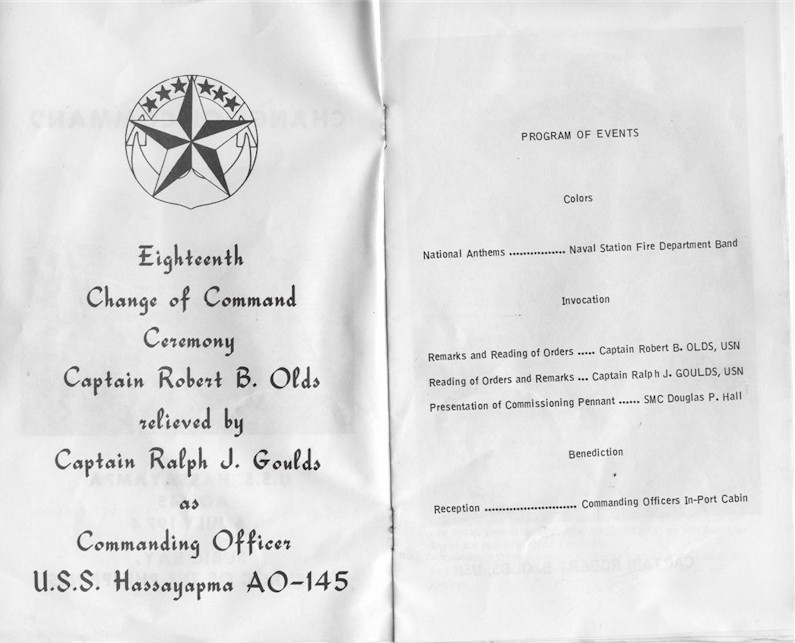 Eighteenth
Change of Command
Ceremony
Captain Robert B. Olds
relieved by
Captain Ralph J. Goulds
as
Commanding Officer
U.S.S. Hassayapma AO-145
PROGRAM OF EVENTS
Colors
National Anthems ................ Naval Station Fire Department Band
Invocation
Remarks and Reading of Orders ..... Captain Robert B. OLDS, USN
Reading of Orders and Remarks ... Captain Ralph J. GOULDS, USN
Presentation of Commissioning Pennant ...... SMC Douglas P. Hall
Benediction
Reception .......................... Commanding Officers In-Port Cabin